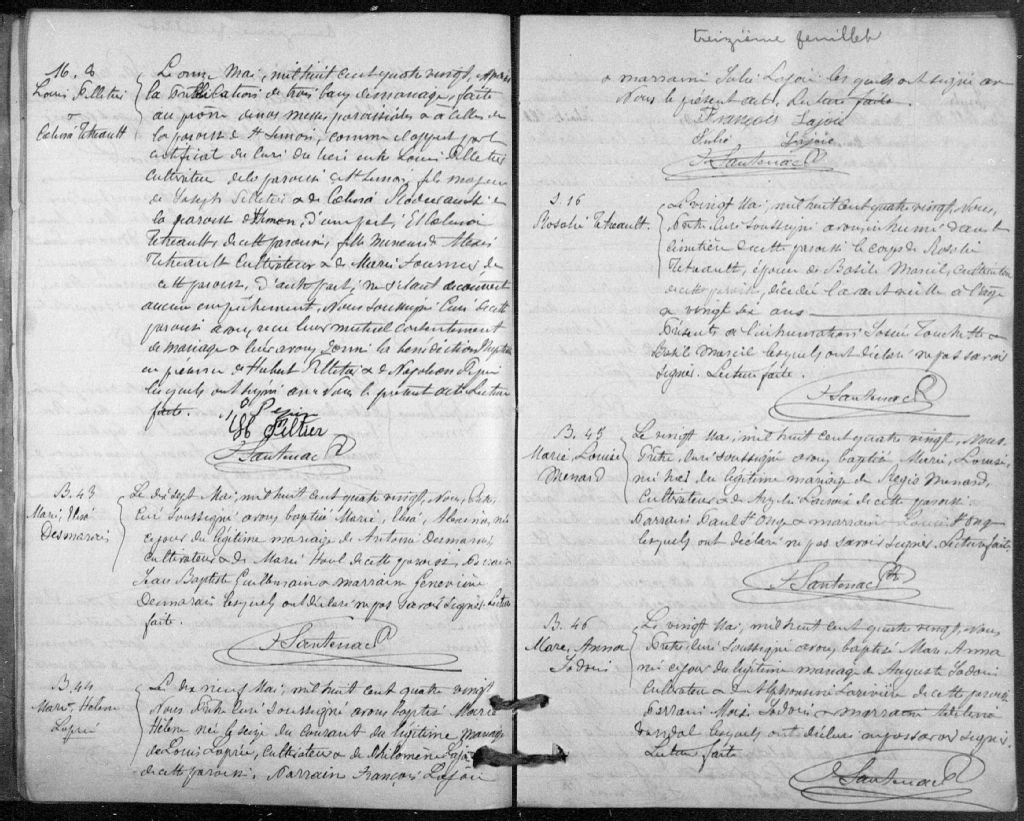 M. 8
Louis Pelletier
&
Celina Tetreault
Le onze Mai, mil huit cent quatre vingt, Après
la Publication de trois bans de mariage, faite
au prône de nos messes paroissiales & à celles de
la paroisse de St Simon, comme il appert par le
certificat du Curé du lieu entre Louis Pelletier
cultivateur de la paroisse de St Simon, fils majeur
de Joseph Pelletier & de Celina
la paroisse St Simon, d'une part, Et Celina
Tetreault, de cette paroisse, fille mineure d'Alexis
Tetreault Cultivateur & de Marie Fournier de
cette paroisse, d'autre part, ne s'étant découvert
aucun empêchement, Nous soussigné Curé de cette
paroisse avons reçu leur mutuel consentement
de mariage & leur avons donné la bénédiction Nuptiale
en présence de Hubert Pelletier & de Napoléon Pepin
lesquels ont signé avec Nous le présent acte. Lecture
faite.
Pepin
Peltier
J Santenac Ptre
B. 43
Marie, Elisé
Desmarais
Le dix sept Mai, mil huit cent quatre vingt, Nous, Prêtre
Curé soussigné avons baptisé Marie, Elisé, née
ce jour du légitime mariage de Antoine Desmarais,
cultivateur & de Marie de cette paroisse. Parrain
Jean Baptiste & marraine Geneviève
Desmarais lesquels ont déclaré ne pas savoir signer. Lecture
faite.
J Santenac Ptre
B. 44
Marie, Hélène
Lapré
Le dix neuf Mai, mil huit cent quatre vingt
Nous Prêtre curé soussigné avons baptisé Marie
Hélène née le seize du courant du légitime mariage
de Louis Lapré, cultivateur & de Philomène Lajoie
de cette paroisse. Parrain François Lajoie
treizième feuillet
& marraine Julie Lajoie lesquels ont signé avec
Nous le présent acte. Lecture faite.
François Lajoie
Julie Lajoie
J Santenac Ptre
S. 16
Rosalie Tetreault.
Le vingt Mai, mil huit cent quatre vingt, Nous,
Prêtre Curé Soussigné avons inhumé dans le
cimetière de cette paroisse le corps de Rosalie
Tetreault, épouse de Basile Marcil, cultivateur
de cette paroisse, décédée l'avant veille à l'âge
de vingt six ans
Présents à l'inhumation Josué Touchette &
Basile Marcil lesquels ont déclaré ne pas savoir
signer. Lecture faite.
J Santenac Ptre
B. 45
Marie, Louise
Menard
Le vingt Mai, mil huit cent quatre vingt, Nous
Prêtre curé soussigné avons baptisé Marie, Louise,
née hier du légitime mariage de Regis Menard,
Cultivateur & de de cette paroisse
Parrain Paul St Onge & marraine Louise St Onge
lesquels ont déclaré ne pas savoir signer. Lecture faite
J Santenac Ptre
B. 46
Marie, Anna
Jodoin
Le vingt Mai, mil huit cent quatre vingt, Nous
Prêtre curé soussigné avons baptisé Marie, Anna
née ce jour du légitime mariage de Auguste Jodoin
Cultivateur & de Alphonsine Larivière de cette paroisse
Parrain Jodoin & marraine
lesquels ont déclaré ne pas savoir signer.
Lecture faite
J Santenac Ptre